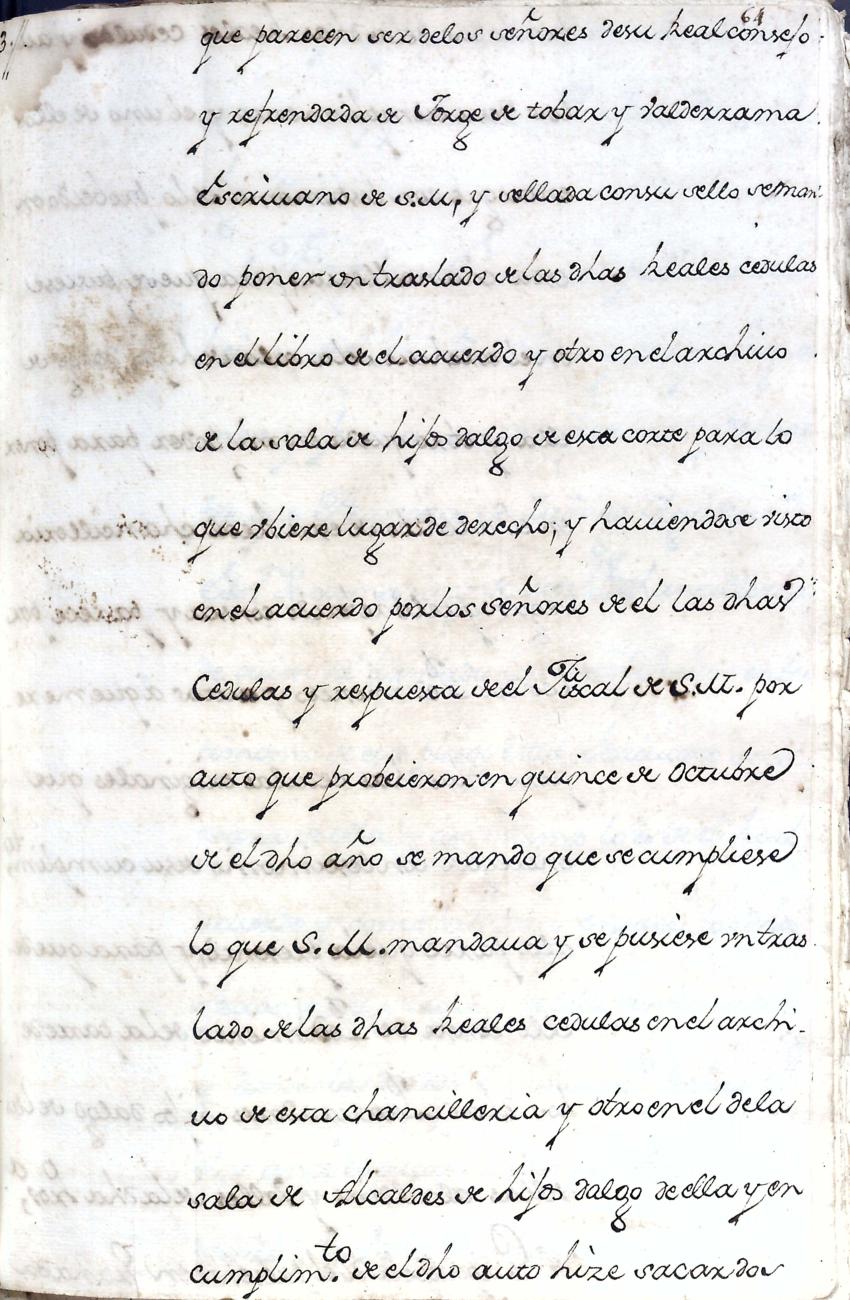 64
que parecen ser delos señores desu Real consejo
y refrendada de Jorge de tobar y Valderrama
Escriuano de S.M, y sellada consu sello seman
do poner vn traslado de las dhas Reales cedulas
en el libro de el acuerdo y otro en el archiuo
de la sala de hijos dalgo de esta corte para lo
que vbiere lugar de derecho; y hauiendose visto
en el acuerdo por los señores de el las dhas
Cedulas y respuesta de el Fiscal de S.M. por
auto que probeieron en quince de Octubre
de el dho año se mando que se cumpliese
lo que S.M. mandaua y se pusiese vn tras
lado de las dhas Reales cedulas en el archi-
uo de esta chancilleria y otro en el de la
sala de Alcaldes de hijos dalgo de ella y en
cumplim.to de el dho auto hize sacar dos